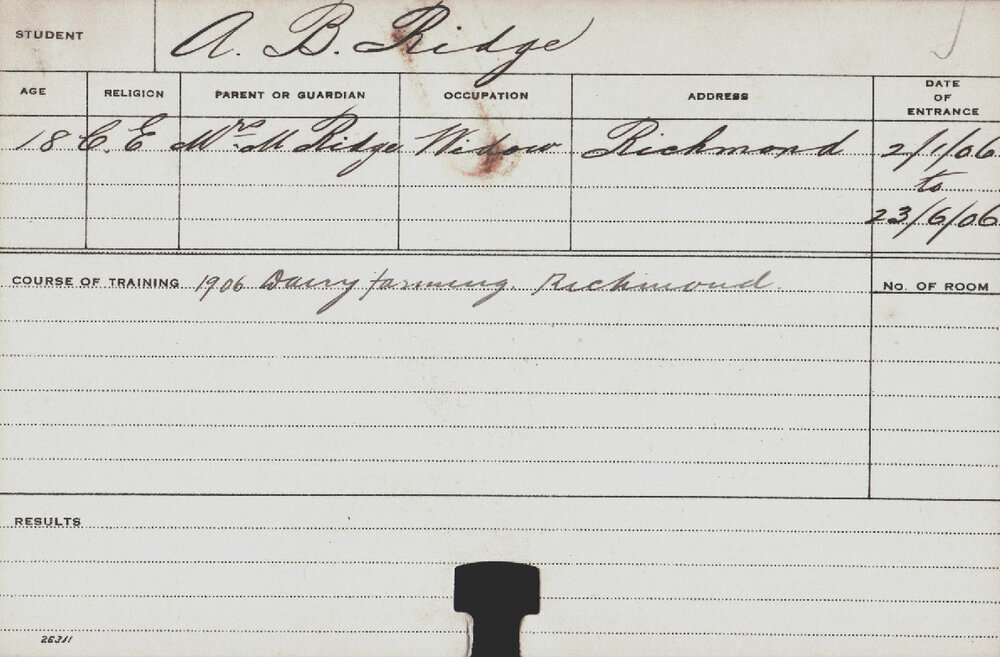 STUDENT A. B. Ridge
AGE RELIGION PARENT OR GUARDIAN OCCUPATION ADDRESS DATE OF ENTRANCE
18 C. E Mrs. M Ridge Widow Richmond 2/1/06
to
23/6/06
COURSE OF TRAINING 1906 Dairy farming. Richmond. No. OF ROOM
RESULTS
26311